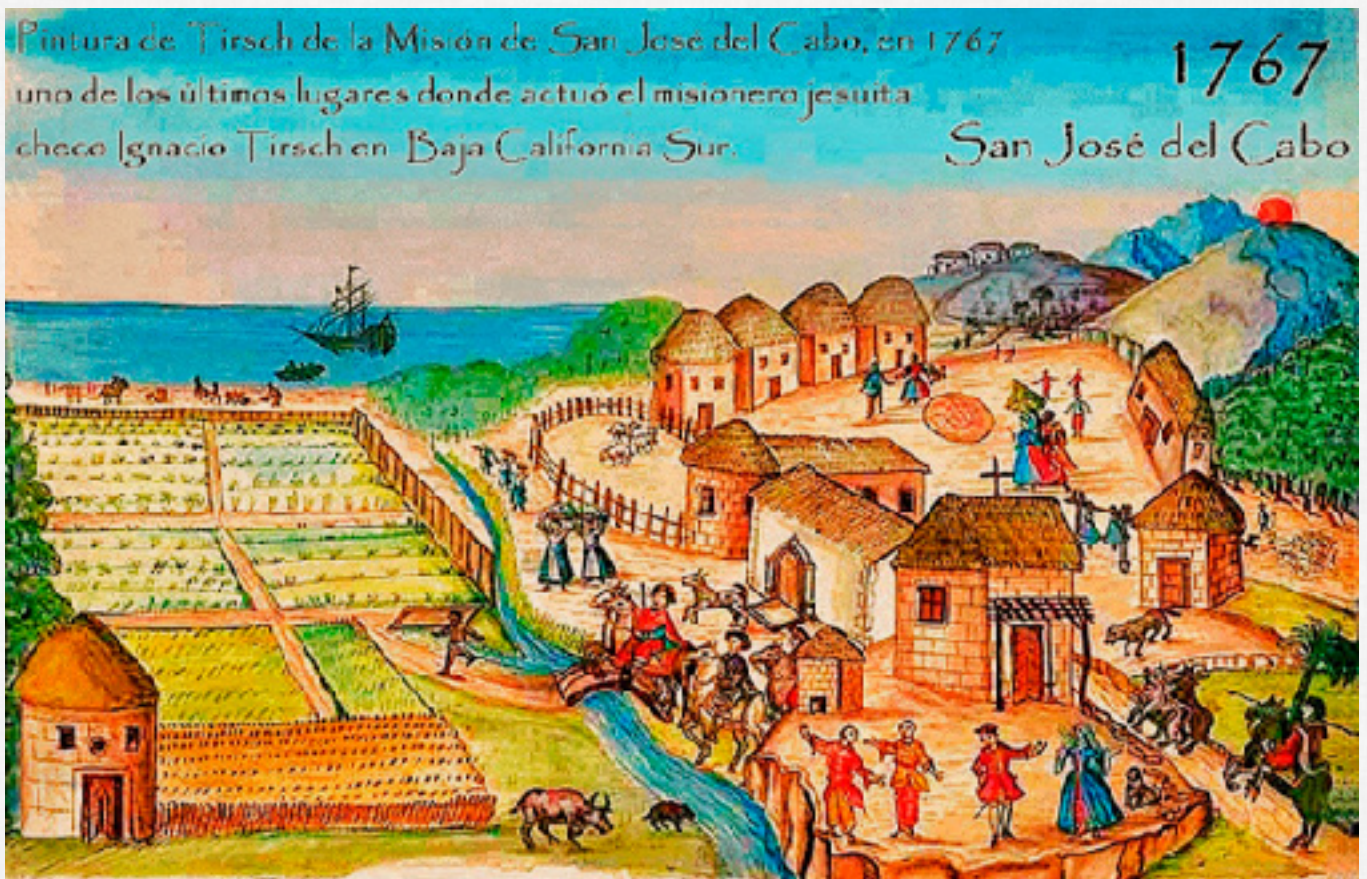 Pintura de Tirsch de la Misión de San José del Cabo, en 1767
uno de los últimos lugares donde actuó el misionero jesuita
checo Ignacio Tirsch en Baja California Sur.
1767
San José del Cabo